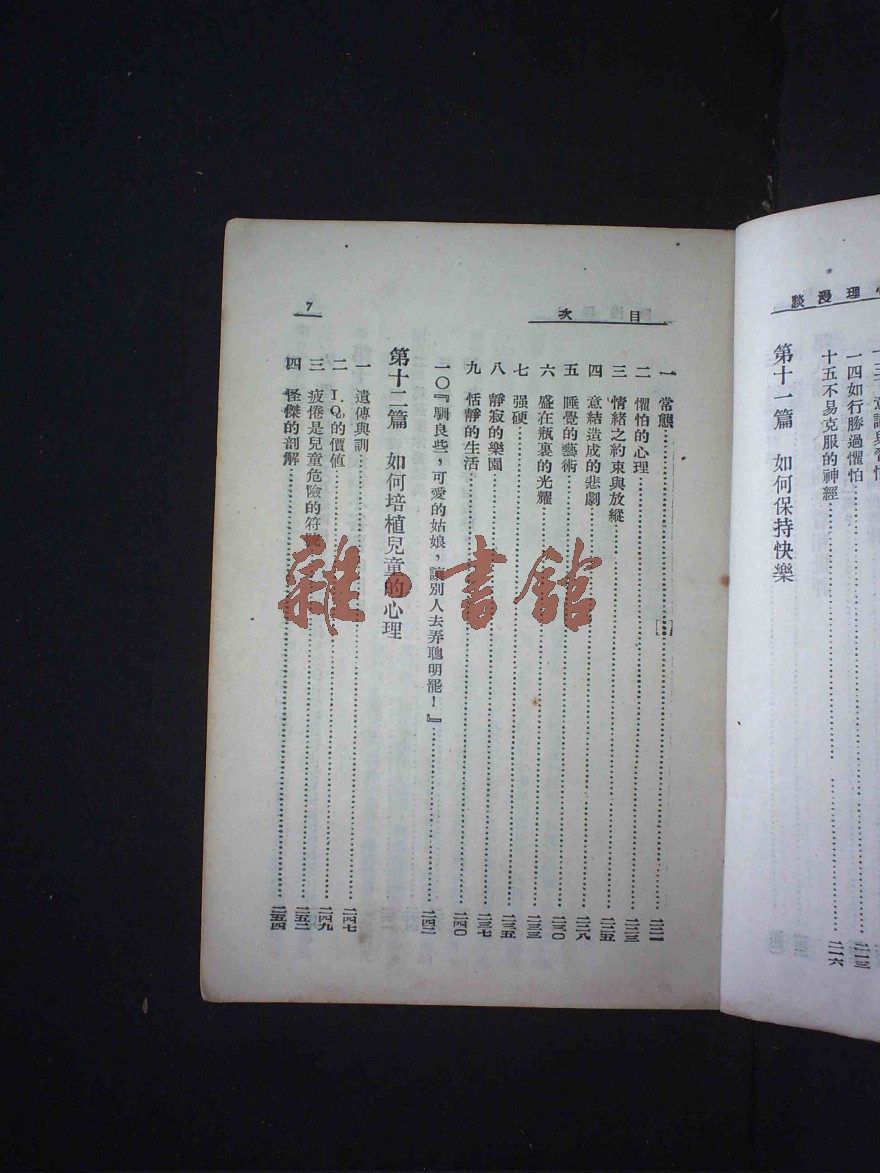 談漫理心
十三 意識與習慣
一四如行勝過懼怕……二一三
十五不易克服的神經……二一六
第十一篇 如何保持快樂
目 次
7
一 常態……二二一
二 懼怕的心理……二二三
三 情緒之約束與放縱……二二五
四 意結造成的悲劇……二二八
五 睡覺的藝術……二三〇
六 盛在瓶裏的光耀……二三三
七 强硬……二三五
八 靜寂的樂園……二三七
九 恬靜的生活……二四〇
一〇『馴良些,可愛的姑娘,讓別人去弄聰明罷!』……二四二
第十二篇 如何培植兒童的心理
一 遺傳與訓……二四七
二 I.Q.的價値……二四九
三 疲倦是兒童危險的符號……二五二
四 怪傑的剖解……二五四
雜·書館